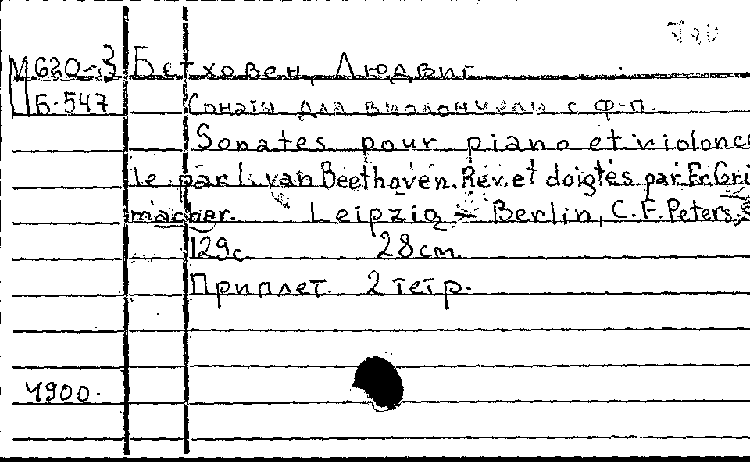 М620-3 Бетховен, Людвиг
Б-547 Сонаты для виолончели с ф-п.
Sonates pour piano et violonc
le par L. van Beethoven. Rev. et doigtés par Fr. Gri
macher. Leipzig – Berlin, C. F. Peters, S
129с. 28 cm.
Приплет 2 тетр.
1900.